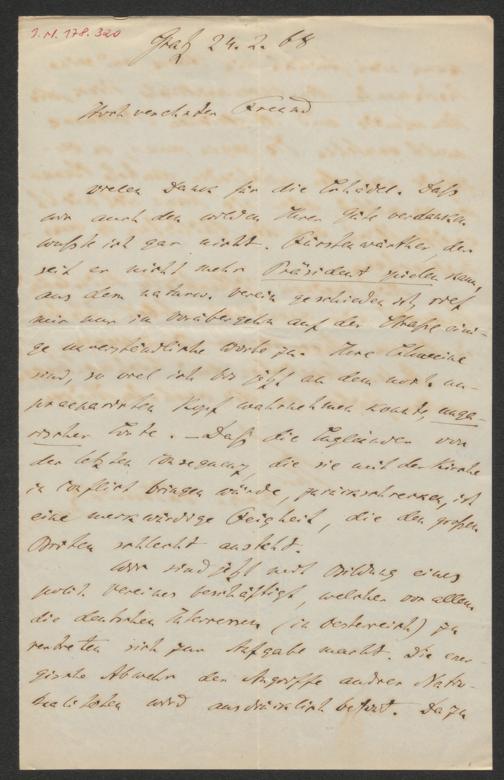 I.N. 178.320
Graz 24.2.68
Hochverehrter Freund
vielen Dank für die Schädel. Daß
wir auch den wilden Ihrer Güte verdanken
wußte ich gar nicht. Fürstenwärther, der
seit er nicht mehr Präsident spielen kann,
aus dem naturw. Verein geschieden ist, rief
mir nur im Vorübergehn auf der Straße eini-
ge unverständliche Worte zu. Ihre Schweine
sind, so viel ich bis jetzt an dem noch un-
praeparirten Kopf wahrnehmen konnte, unga-
rischer . – Daß die Engländer von
der letzten Consequenz, die sie mit der Kirche
in Conflict bringen würde, zurückschrecken, ist
eine merkwürdige Feigheit, die den großen
Briten schlecht ansteht.
Wir sind jetzt mit Bildung eines
polit. Vereines beschäftigt, welcher vor allem
die deutschen Interessen (in Oesterreich) zu
vertreten sich zur Aufgabe macht. Die ener-
gische Abwehr der Angriffe andrer Natio-
nalitäten wird ausdrücklich betont. Dazu